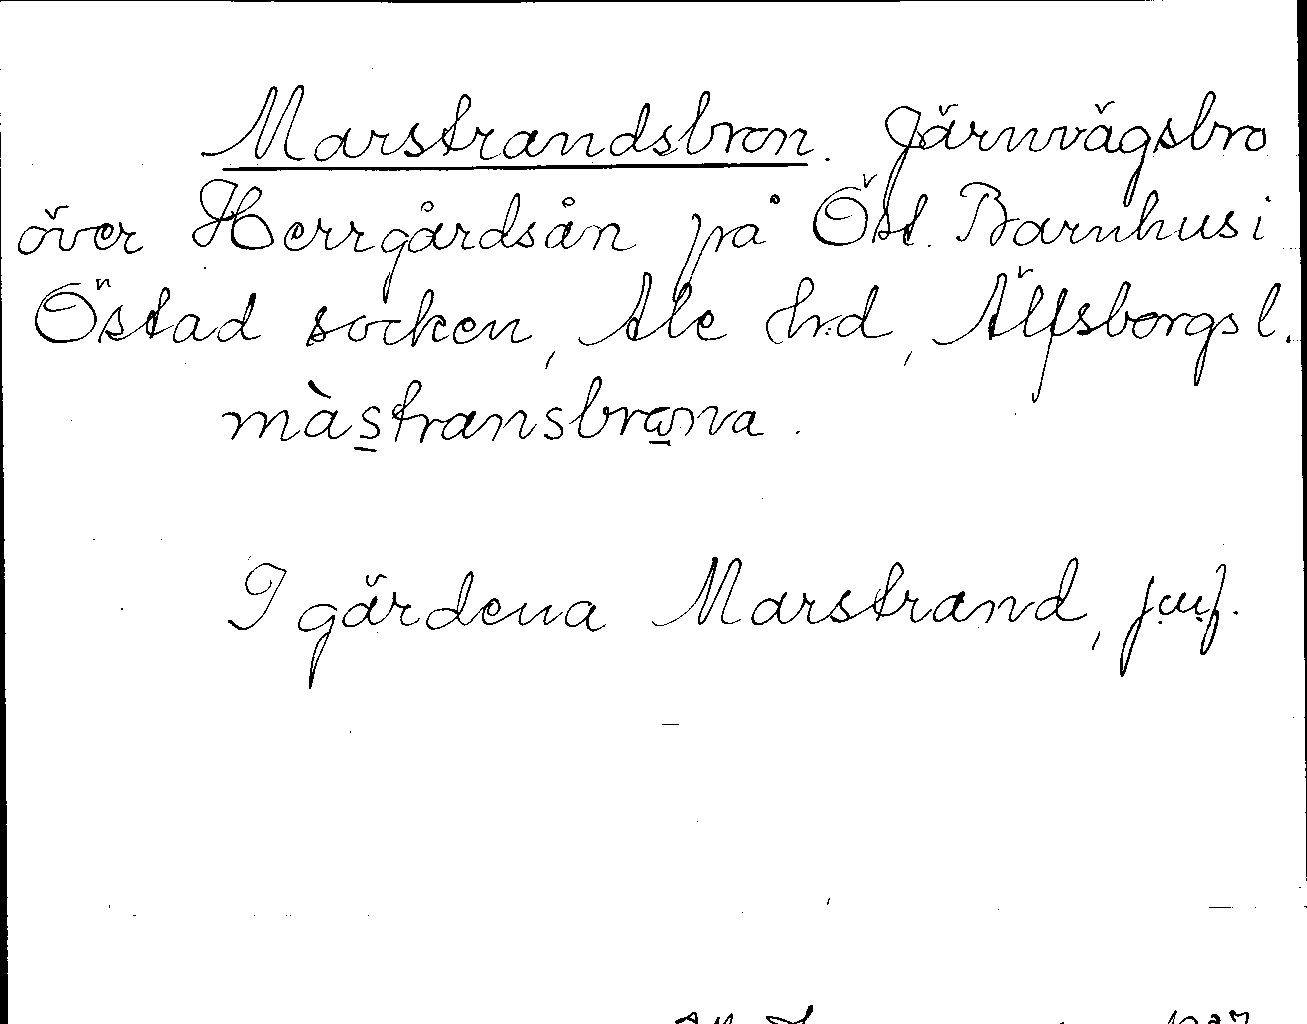 Marstrandsbron. Järnvägsbro
över Herrgårdsån på Öst. Barnhus i
Östad socken, Ale h:d, Älfsborgs l.
màs̲transbrω̲na.
I gärdena Marstrand, jmf.